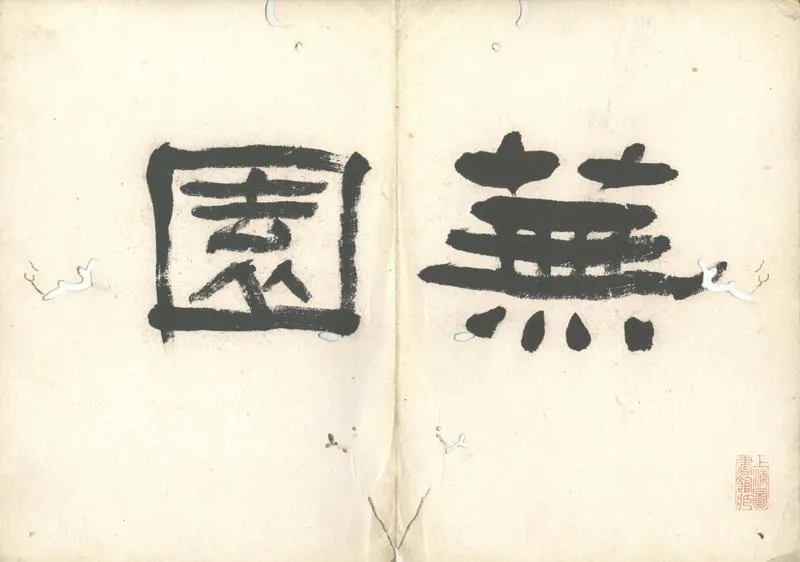 蕪園
上海圖
書館藏